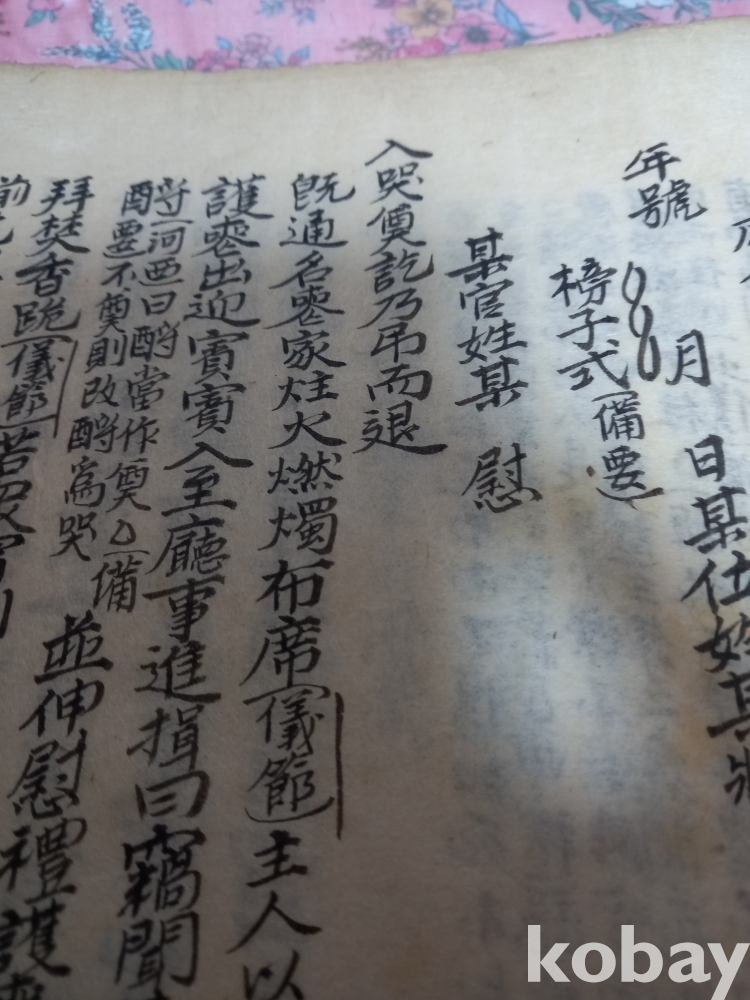 年號 月 日某仕姓某狀
榜子式備要
某官姓某 慰
入哭奠訖乃吊而退
旣通名喪家炷火燃燭布席儀節主人以
護喪出迎賓賓入至廳事進揖曰竊聞
酹河西曰酹當作奠
酹要不奠則改酹爲哭
備
並伸慰禮護喪
拜焚香跪儀節若衆賓則
前
kobay